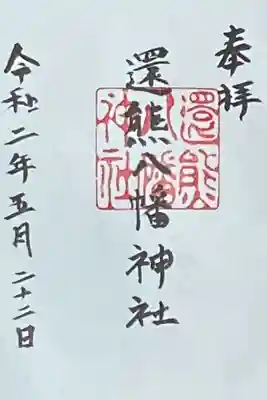 奉拝
還熊八幡神社
還熊八幡神社
令和二年五月二十二日